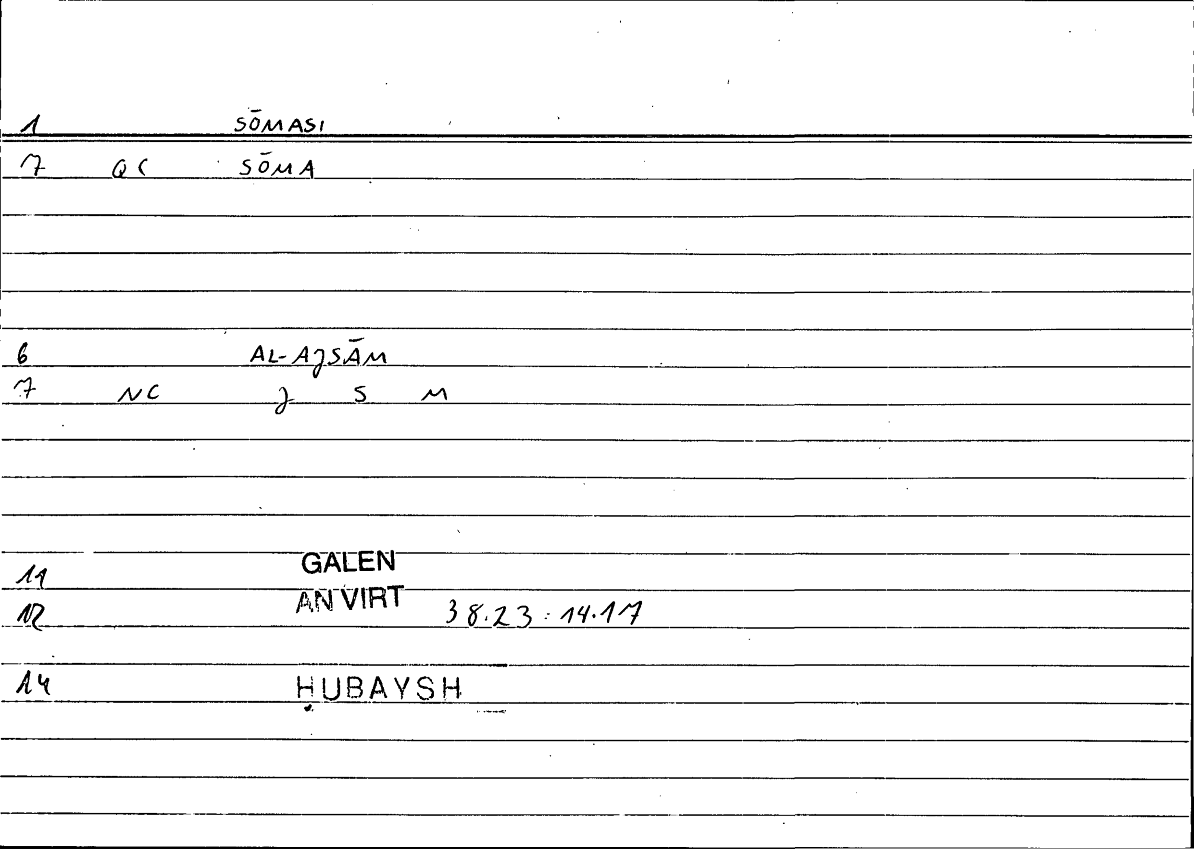 1 SŌMASI
7 QC SŌMA
6 AL-AJSĀM
7 NC J S M
11 GALEN
12 AN VIRT 38.23 : 14.17
14 ḤUBAYSH